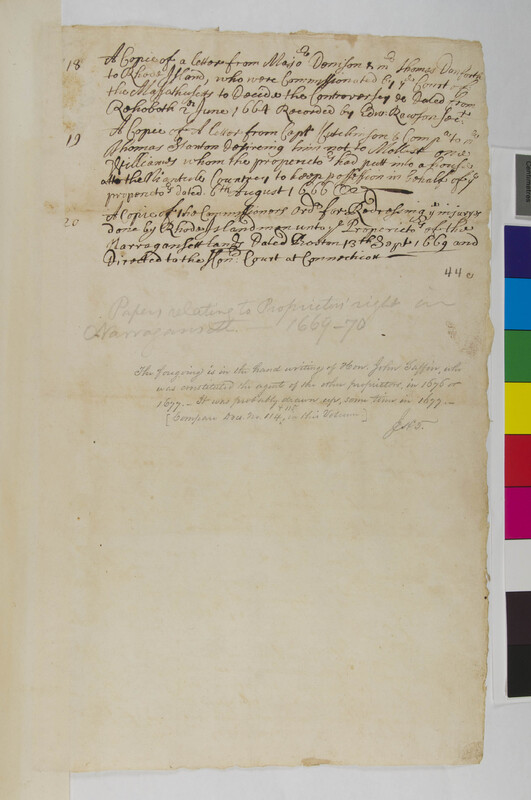 18 A Copie of a letter from Majo:r Denison & mr Thomas Danforth
to Rhode Island, who were Commissionated by ye Court of
the Massthusets to Decide the Controversy &c Dated from
Rehoboth 2m June 1664 Recorded by Edw: Rawson Secty
19 A Copie of A letter from Capt Hutchinson & Compa to mr
Thomas Stanton Desireing him not to Mollest one
Williams whom the propriets had putt into a house
att the Niantick Countrey to keep possession in behalf of ye
propriets dated 6th August 1668
20 A Copie of the Commissioners Ordr for Redressing ye injurys
done by Rhode Island men unto ye Properiets of the
Narragansett lands Dated Boston 13th Sept 1669 and
Directed to the Honr Court at Connecticott
440
Papers relating to Proprietors' right in
Narragansett — 1664-70
The foregoing is in the hand writing of Hon. John Saffin, who
was constituted the agent of the other proprietors, in 1676 or
1677.– It was probably drawn up, some time in 1677.–
[Compare Doc. No. 114, in this Volume]